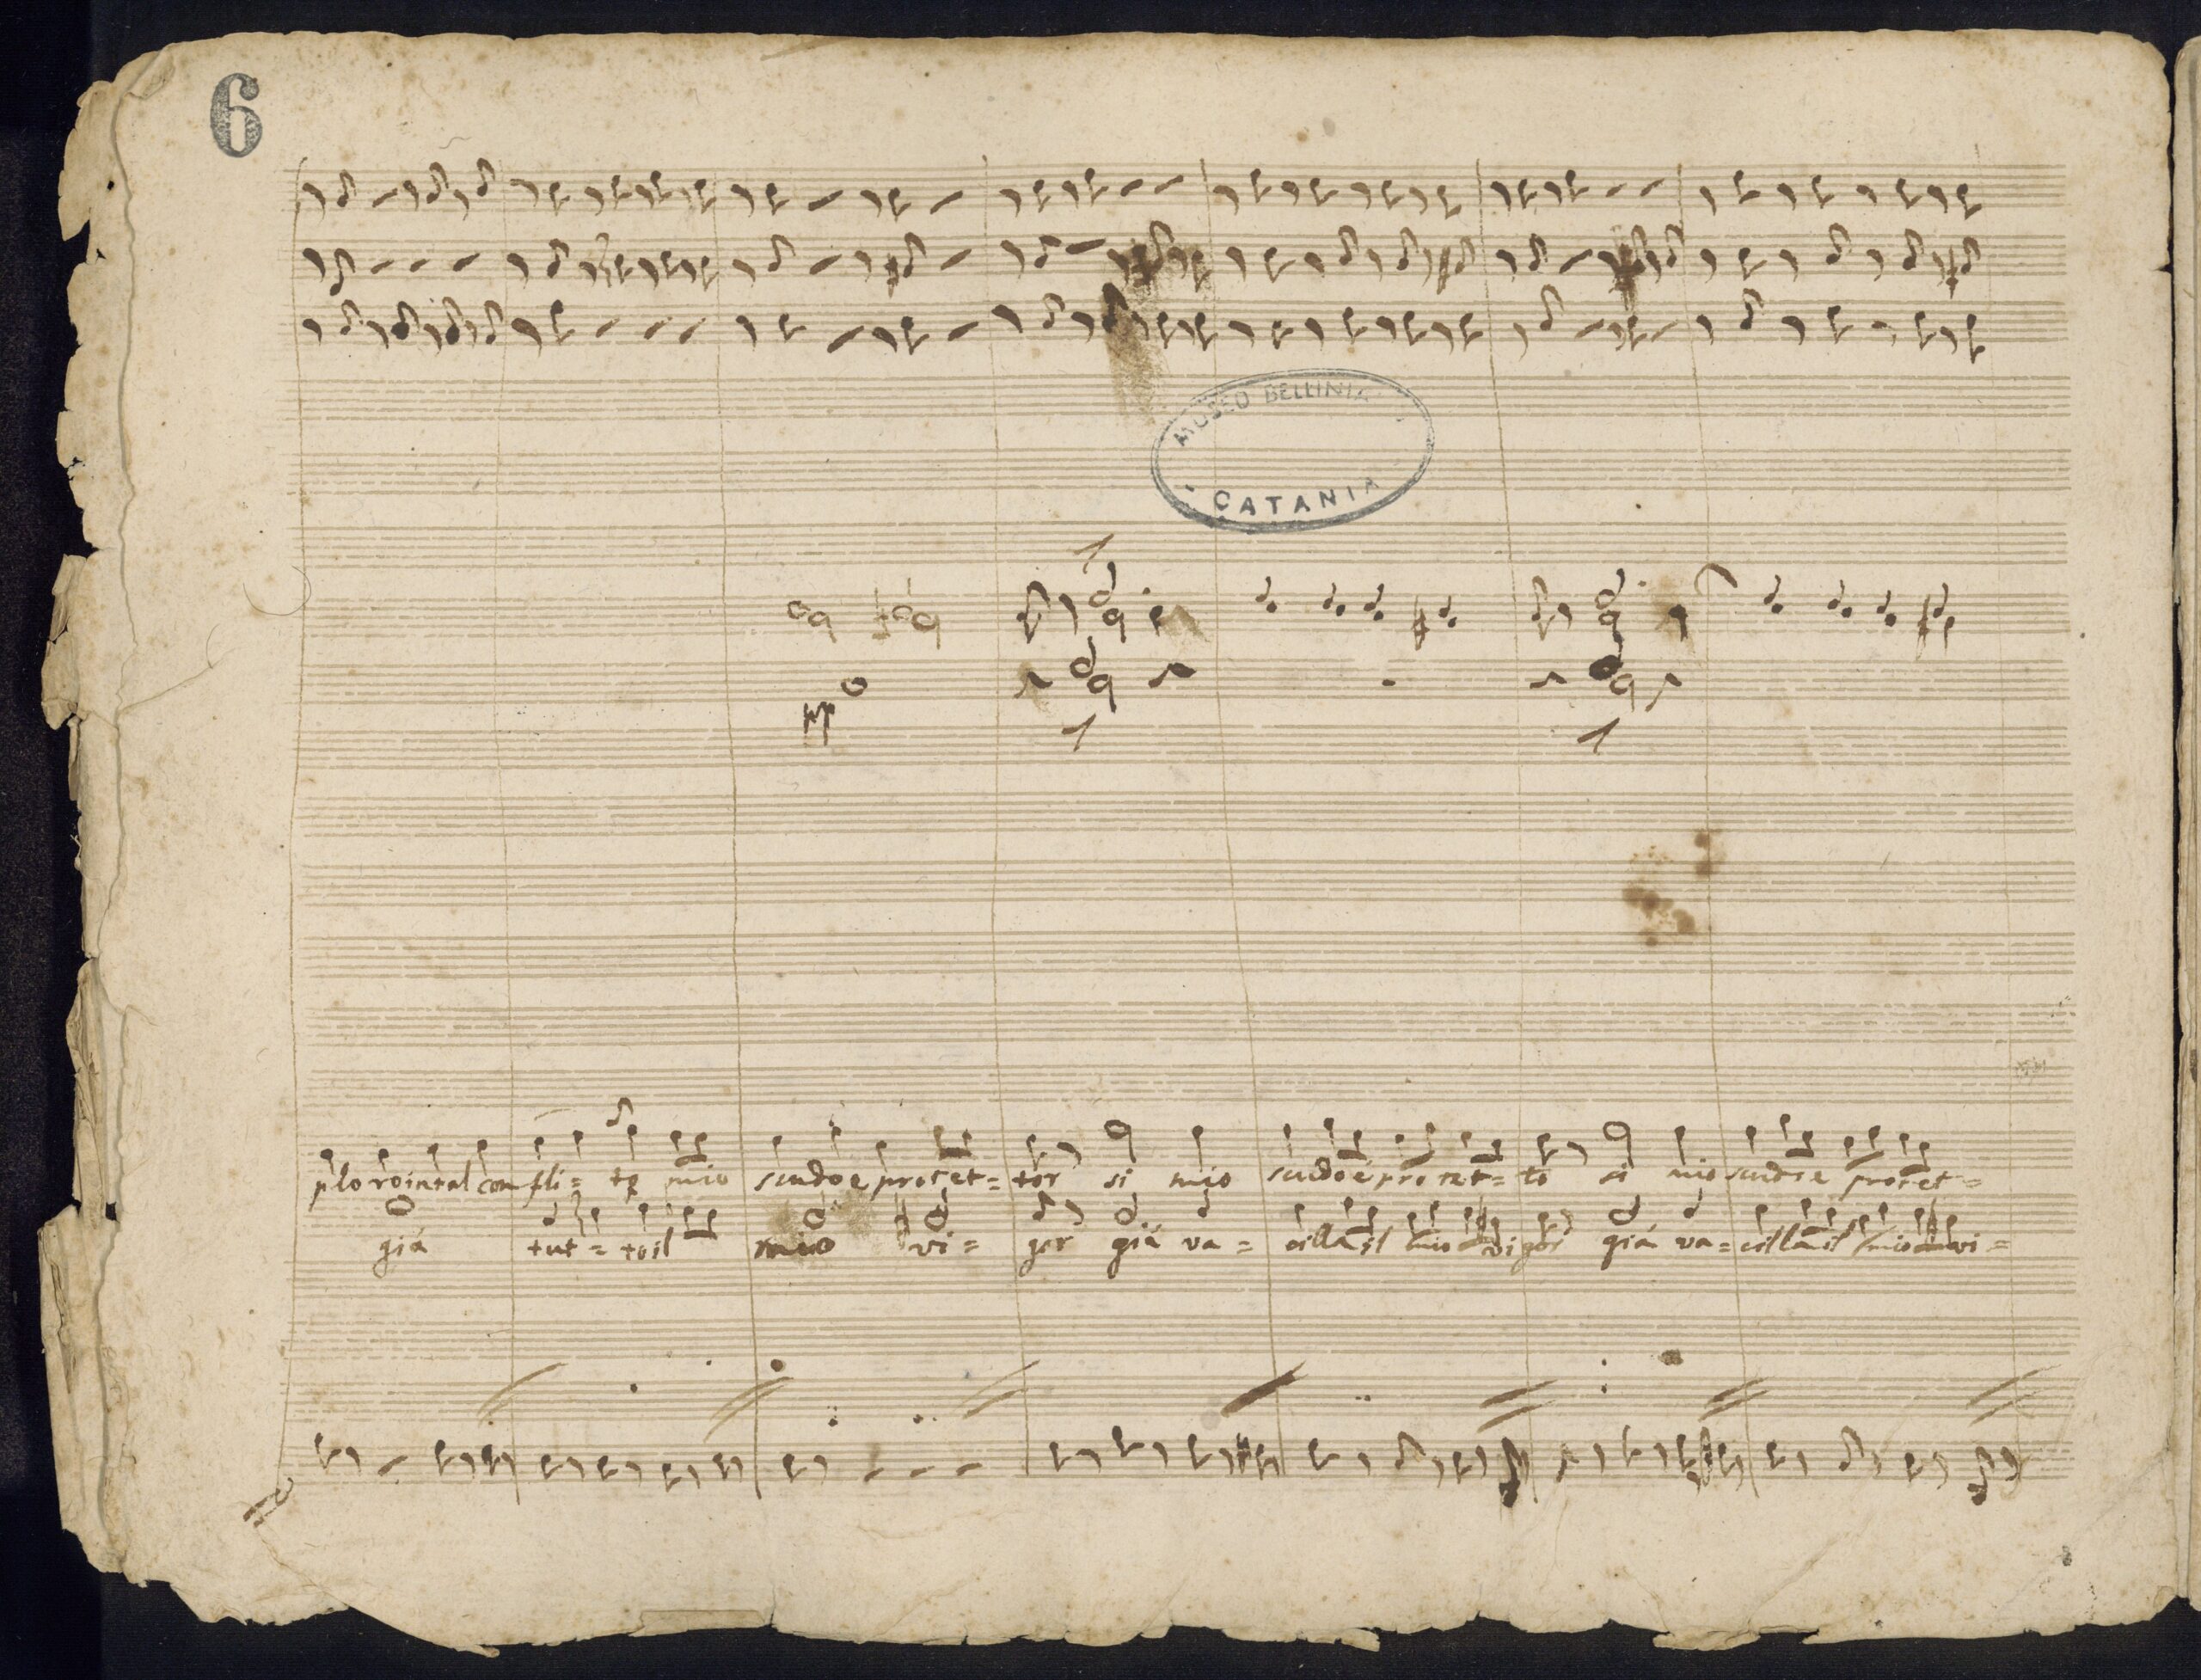 6
MUSEO BELLINIA
CATANIA
pp
plorointal compli= to mio scudo e protet= tor si mio scudo e protet= to si mio scudo e protet=
già tut= toil mio vi= gor già va= cilla il mio vi gor già va= cilla il mio vi=